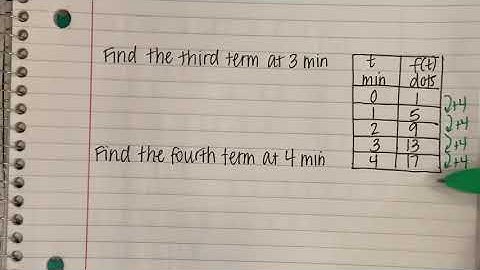 Find the third term at 3 min
t f(t)
min dots
0 1
1 5 +4
2 9 +4
3 13 +4
4 17 +4
Find the fourth term at 4 min